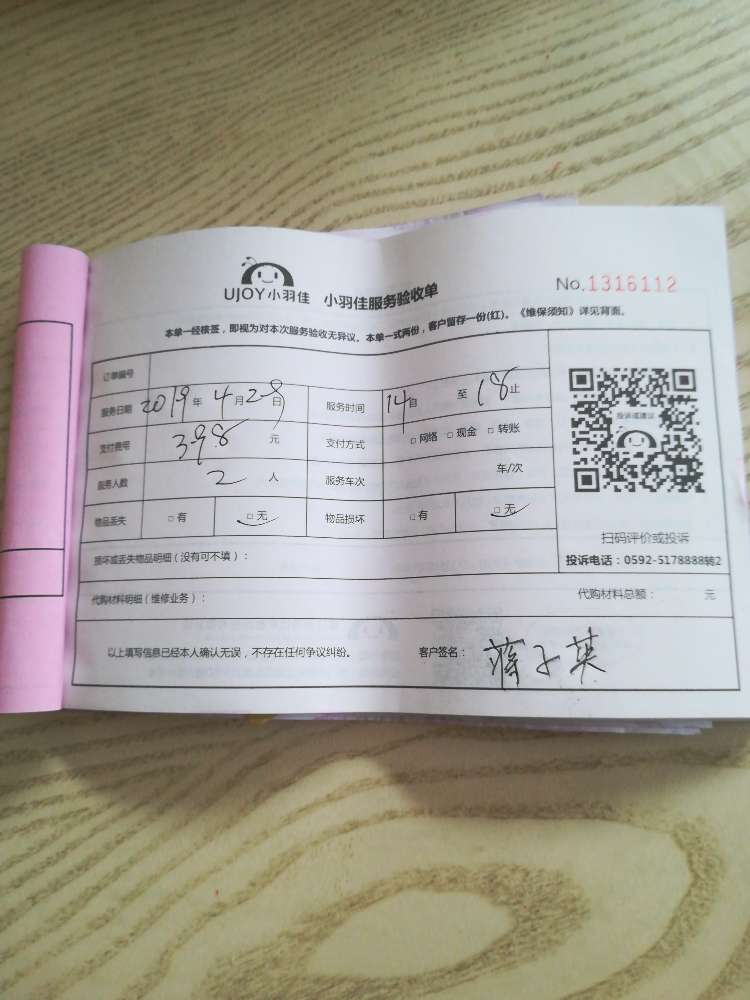 UJOY小羽佳 小羽佳服务验收单 No.1316112
本单一经核签，即视为对本次服务验收无异议。本单一式两份，客户留存一份(红)。《维保须知》详见背面。
订单编号
服务日期 2019年4月28日 服务时间 14自 至18止
支付费用 398元 支付方式 □网络 □现金 □转账
服务人数 2人 服务车次 车/次
物品丢失 □有 □无 物品损坏 □有 □无
投诉或建议
扫码评价或投诉
投诉电话：0592-5178888转2
损坏或丢失物品明细（没有可不填）：
代购材料明细（维修业务）： 代购材料总额： 元
以上填写信息已经本人确认无误，不存在任何争议纠纷。 客户签名：蒋子英